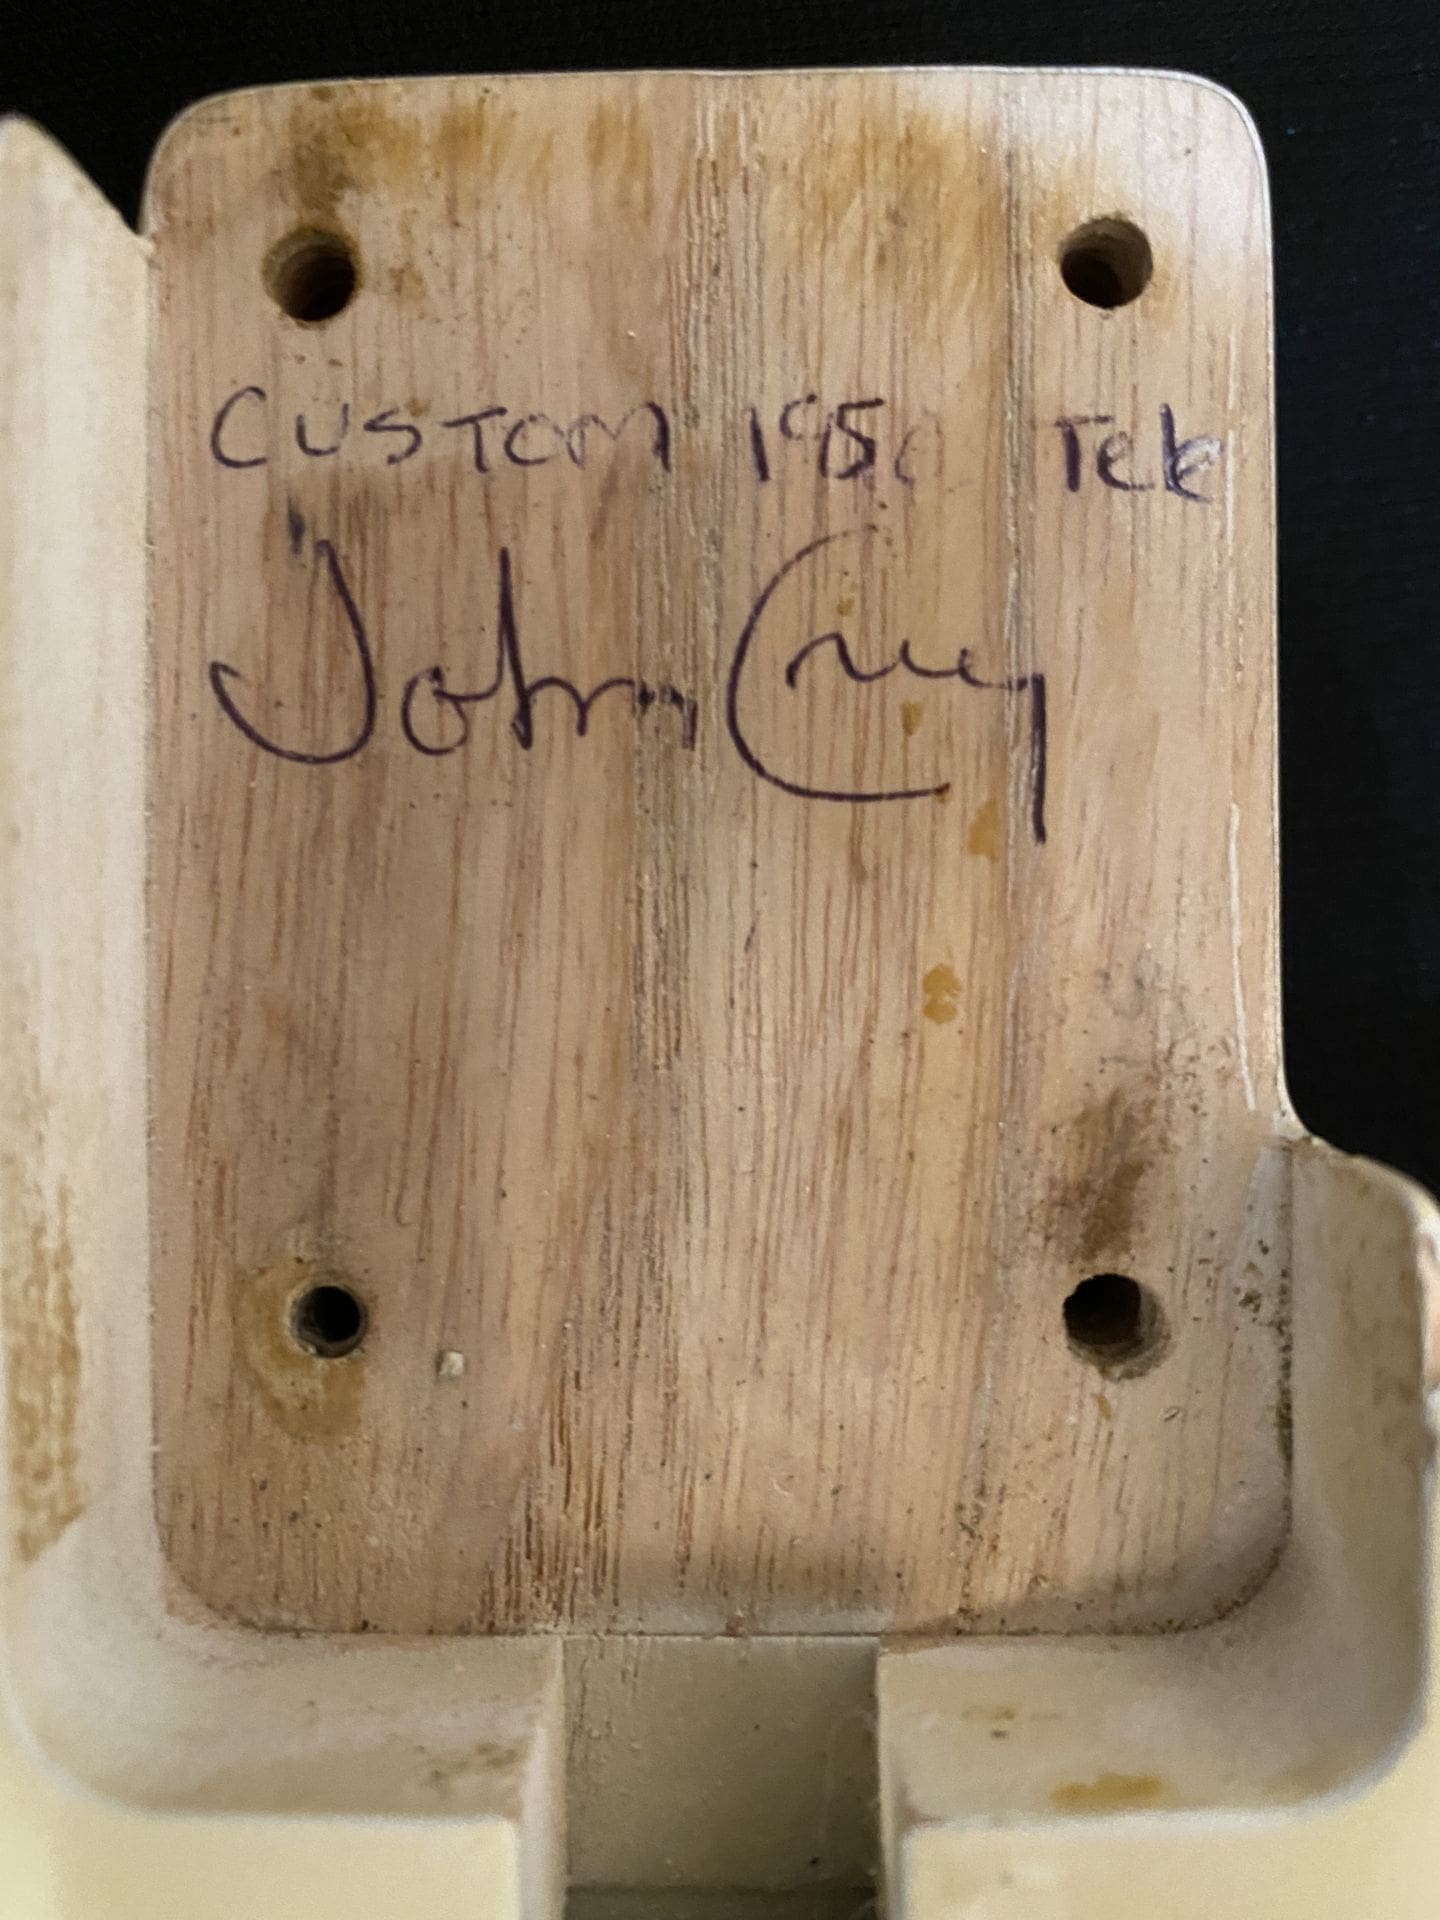 CUSTOM 1950 Tele
John Cruz